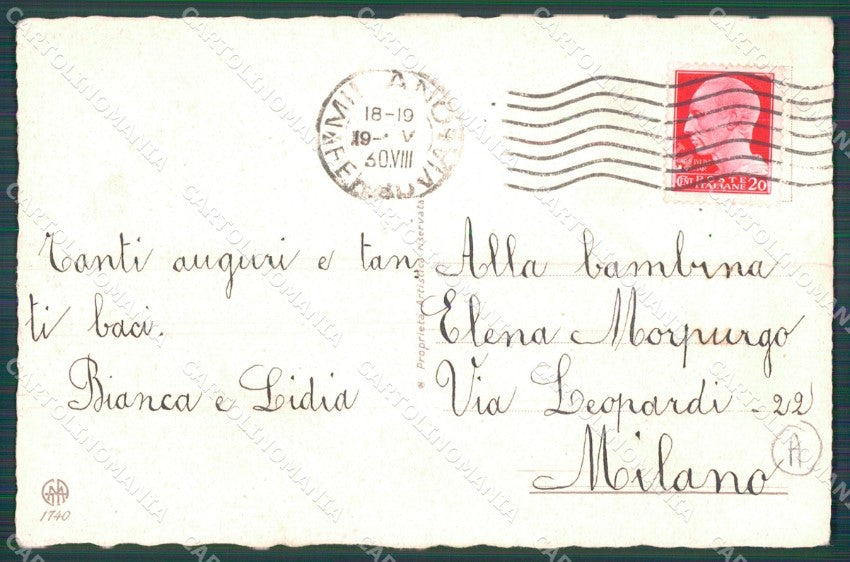 MILANO
18-19
19-· V
30.VIII
FERROVIA
POSTE
ITALIANE
CENT 20
Tanti auguri e tan
ti baci.
Bianca e Lidia
Proprietà Artistica riservata
Alla bambina
Elena Morpurgo
Via Leopardi - 22
Milano
A
1740
CARTOLINOMANIA